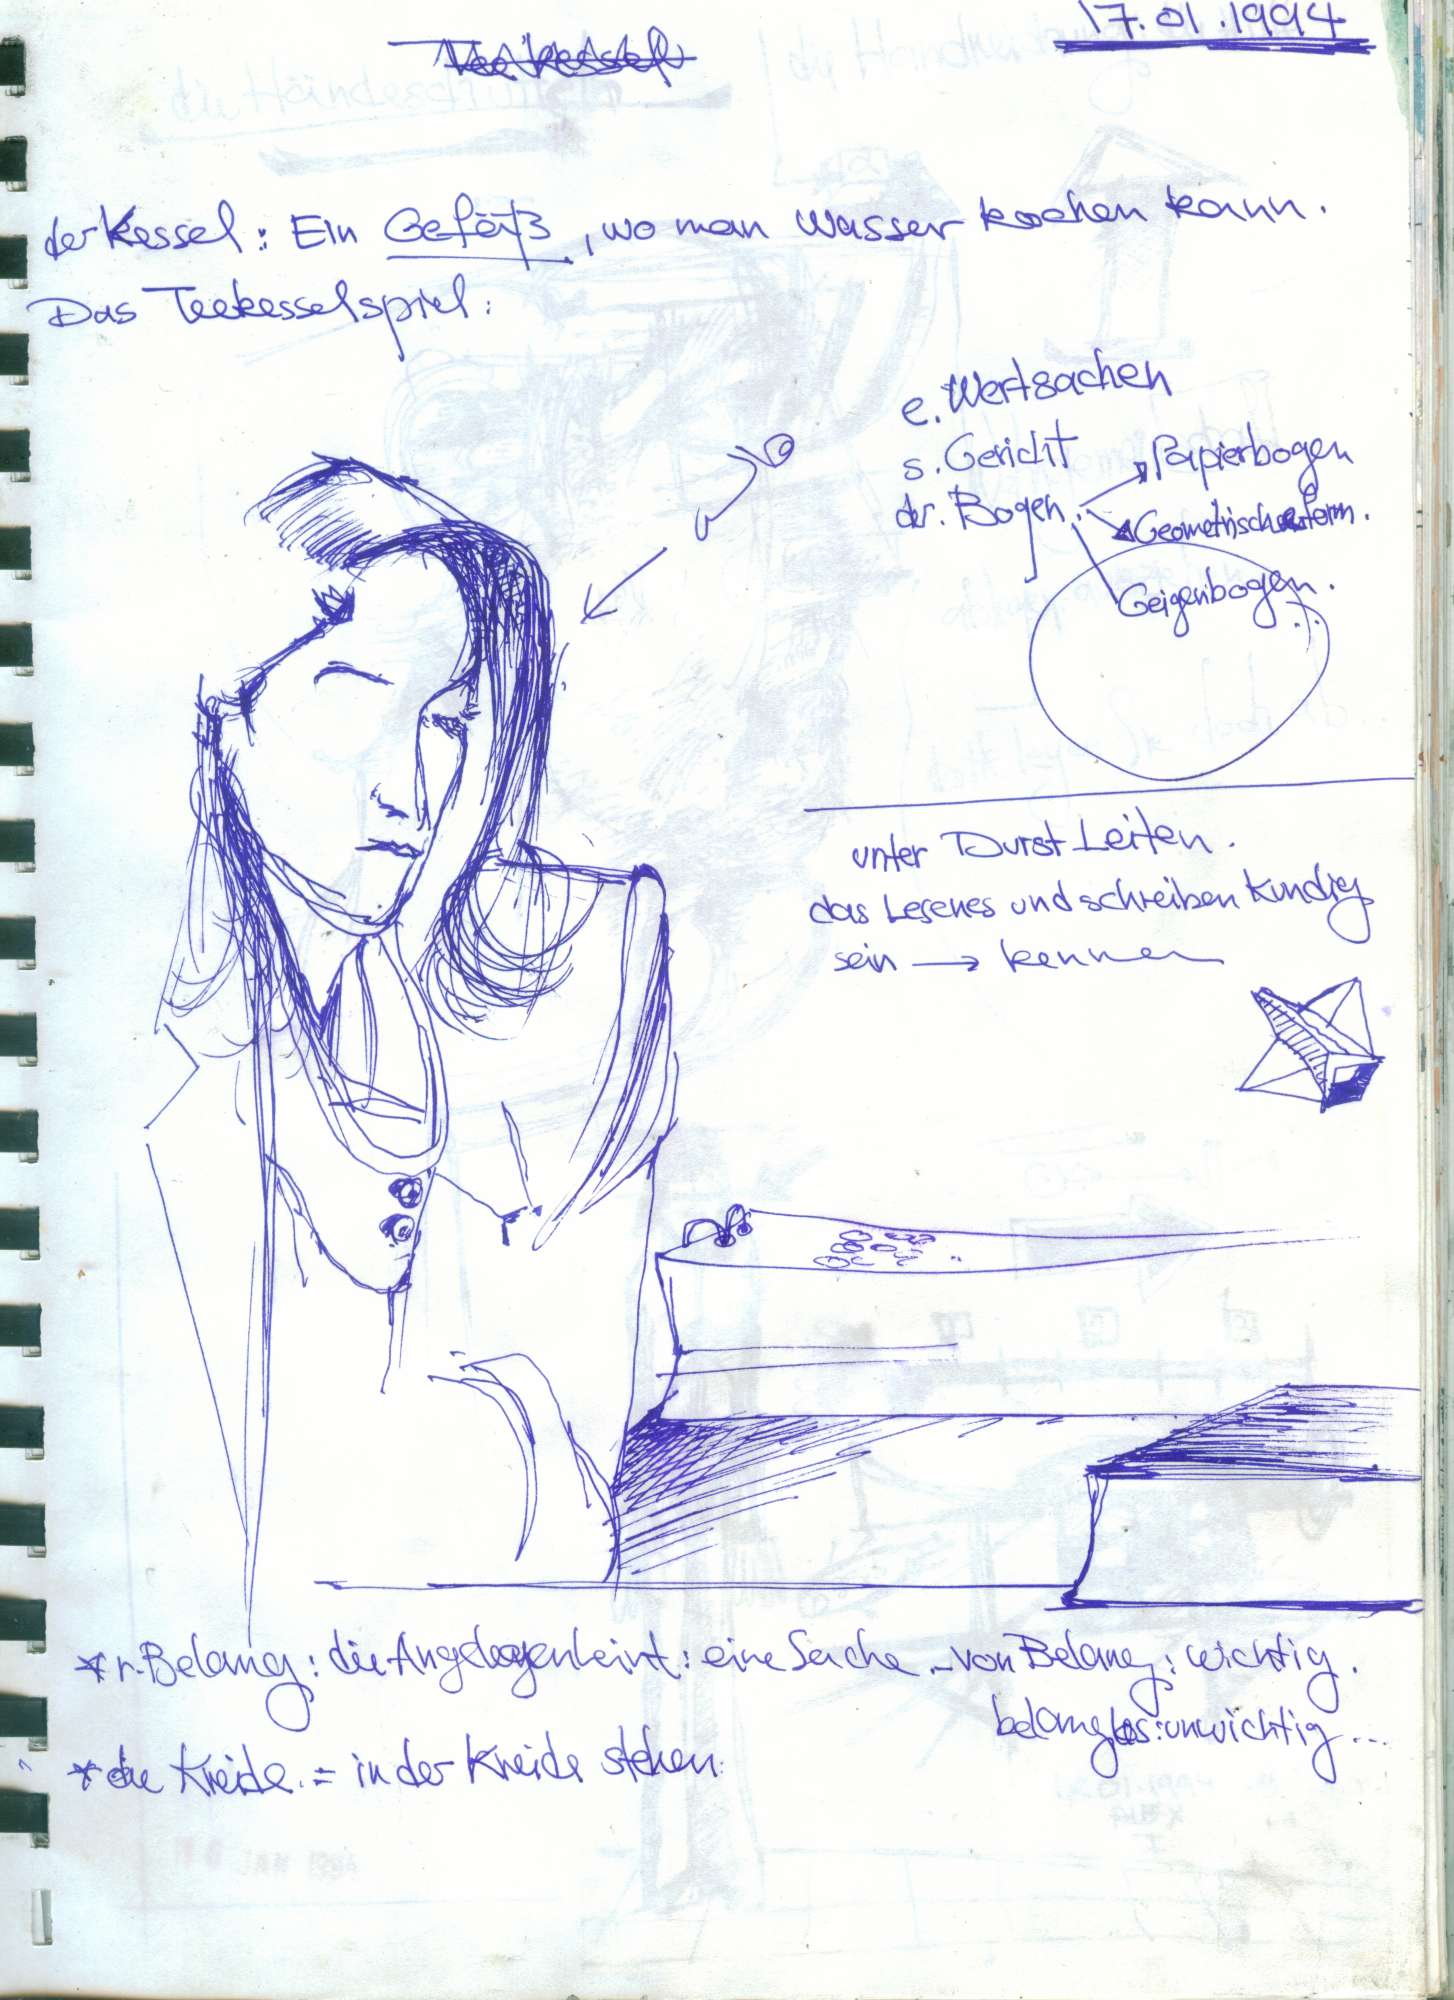 17.01.1994
der Kessel: Ein Gefäß, wo man Wasser kochen kann.
Das Teekesselspiel:
e. Wertsachen
s. Gericht
der. Bogen
Papierbogen
Geometrische Form.
Geigenbogen...
unter Durst Leiten.
das Lesenes und schreiben Kundig
sein → kennen
* r. Belang: die Angelegenheint: eine Sache - von Belang: wichtig.
belanglos: unwichtig...
* die Kreide. = in der Kreide stehen.